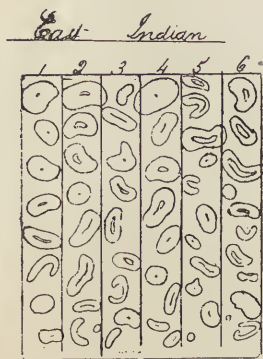 East Indian
1 2 3 4 5 6